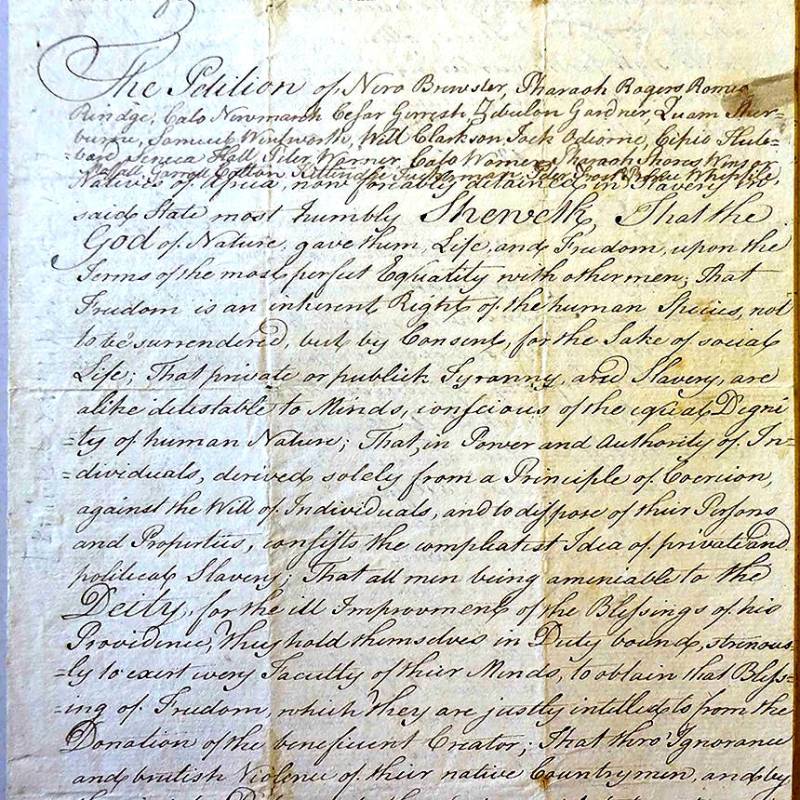 The Petition of Nero Brewster, Pharaoh Rogers Romeo
Rindge, Cato Newmarch Cesar Gerrish, Zebulon Gardner, Quam Sher=
burne, Samuel Wentworth, Will Clarkson, Jack Odiorne, Cipio Hub=
=bard, Seneca Hall, Peter Warner, Cato Warner, Pharaoh Shores, Winsor
Moffatt, Garrott Colton, Kittindge Tuckerman, Peter Frost, Prince Whipple
Natives of Africa, now forcably detained in Slavery, in
said State most humbly Sheweth, That the
God of Nature, gave them, Life, and Freedom, upon the
Terms of the most perfect Equality with other men; That
Freedom is an inherent Right of the human Species, not
to be surrendered, but by Consent, for the Sake of social
Life; That private or publick Tyranny, and Slavery, are
alike detestable to Minds, conscious of the equal Digni
=ty of human Nature; That, in Power and Authority of In=
=dividuals, derived solely from a Principle of Coercion,
against the Will of Individuals, and to dispose of their Persons
and Properties, consists the compleatest Idea of private and
political Slavery; That all men being ameniable to the
Deity, for the ill Improvment of the Blessings of his
Providence, They hold themselves in Duty bound, strenous
=ly to exert every Faculty of their Minds, to obtain that Bless=
=ing of Freedom, which they are justly intitled to from the
Donation of the beneficent Creator; That thro' Ignorance
and brutish Violence of their native Countrymen, and by